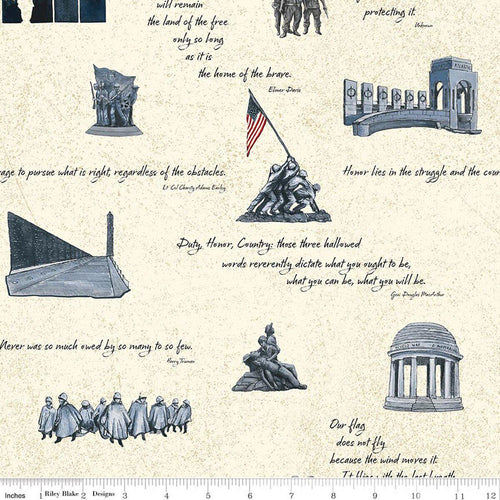 will remain
the land of the free
only so long
as it is
the home of the brave.
Elmer Davis
protecting it.
Unknown
ATLANTIC
age to pursue what is right, regardless of the obstacles.
Lt Col Charity Adams Earley
Honor lies in the struggle and the cour
Duty, Honor, Country: those three hallowed
words reverently dictate what you ought to be,
what you can be, what you will be.
Gen. Douglas MacArthur
Never was so much owed by so many to so few.
Harry Truman
Our flag
does not fly
because the wind moves it.
It flies with the last breath
Inches 1 Riley Blake 2 Designs 3 4 5 6 7 8 9 10 11 12